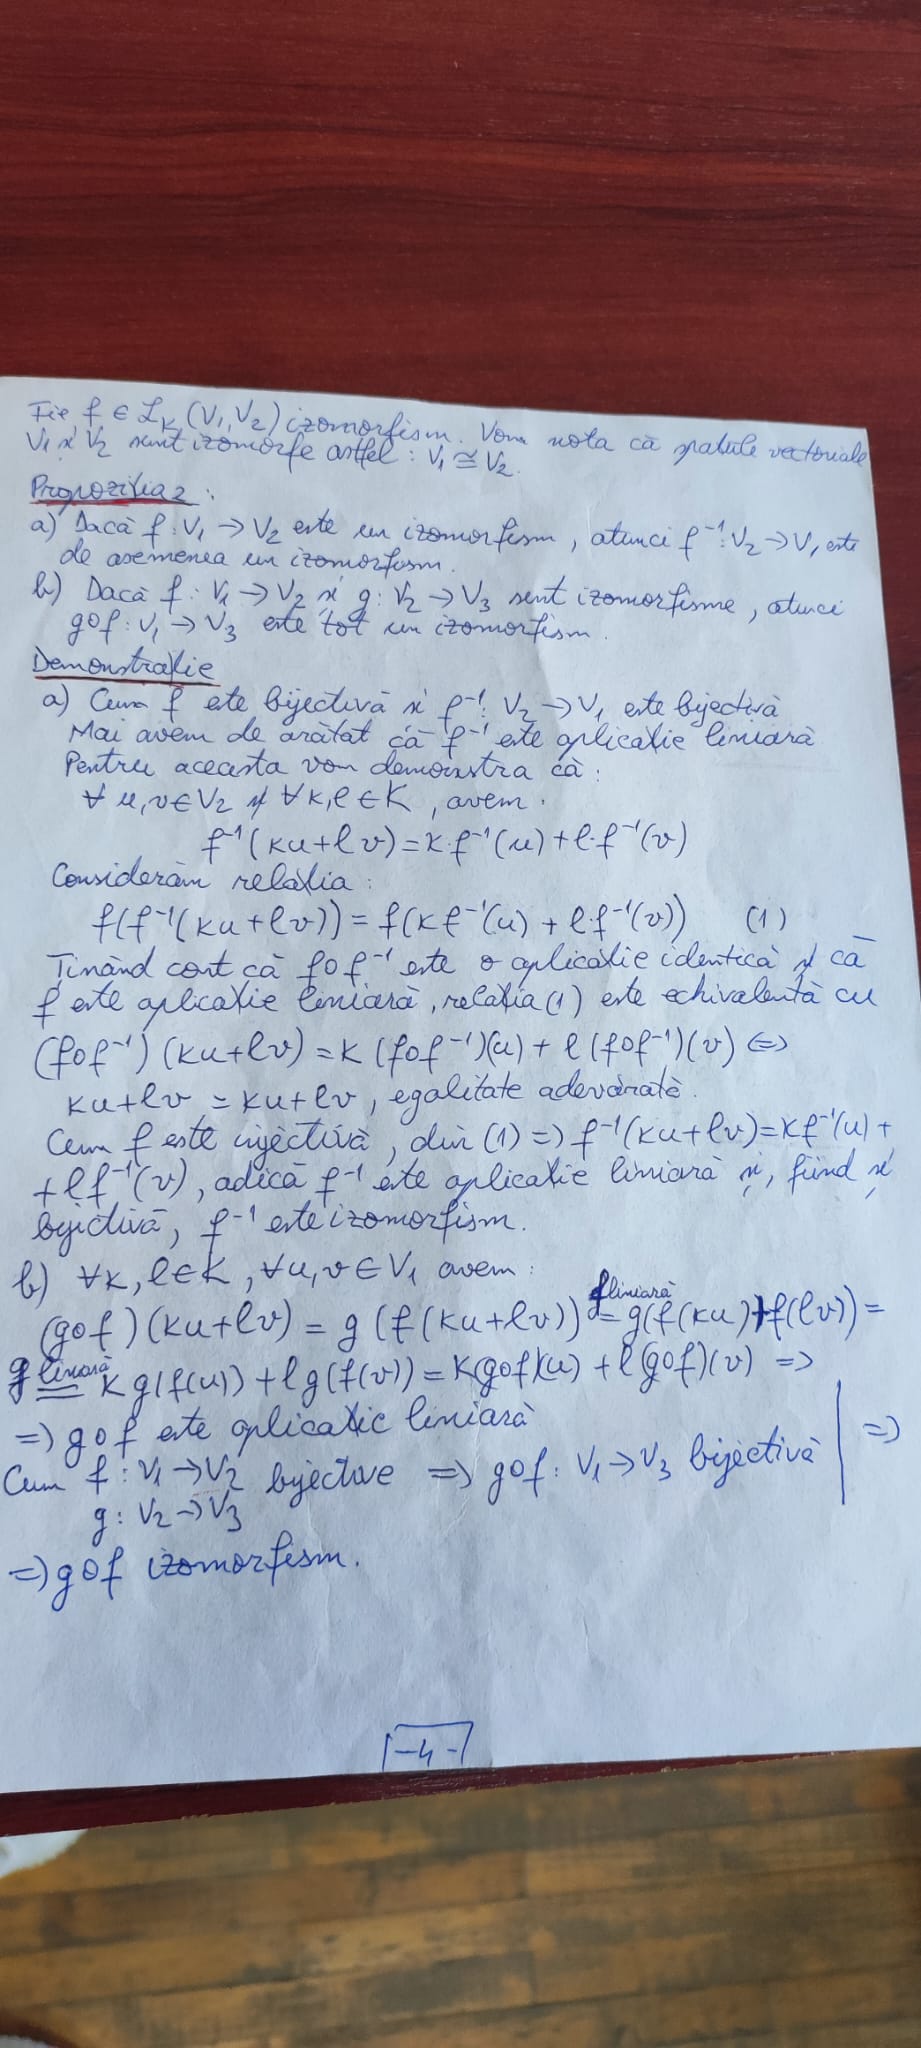 Fie f ∈ L_K (V₁, V₂) izomorfism. Vom nota că spațiile vectoriale
V₁ și V₂ sunt izomorfe astfel : V₁ ≅ V₂.
Propoziția 2 :
a) Dacă f : V₁ → V₂ este un izomorfism, atunci f⁻¹: V₂ → V₁ este
de asemenea un izomorfism.
b) Dacă f : V₁ → V₂ și g: V₂ → V₃ sunt izomorfisme, atunci
gof : V₁ → V₃ este tot un izomorfism.
Demonstrație
a) Cum f este bijectivă și f⁻¹: V₂ → V₁ este bijectivă
Mai avem de arătat că f⁻¹ este aplicație liniară
Pentru aceasta vom demonstra că :
∀ u, v ∈ V₂ și ∀ k, l ∈ K, avem.
f⁻¹(ku+lv) = k·f⁻¹(u) + l·f⁻¹(v)
Considerăm relația :
f(f⁻¹(ku+lv)) = f(kf⁻¹(u) + lf⁻¹(v)) (1)
Ținând cont că fof⁻¹ este o aplicație identică și că
f este aplicație liniară, relația (1) este echivalentă cu
(fof⁻¹) (ku+lv) = k (fof⁻¹)(u) + l (fof⁻¹)(v) ⇔
ku+lv = ku+lv, egalitate adevărată.
Cum f este injectivă, din (1) ⇒ f⁻¹(ku+lv) = kf⁻¹(u) +
+ lf⁻¹(v), adică f⁻¹ este aplicație liniară și, fiind și
bijectivă, f⁻¹ este izomorfism.
b) ∀k, l ∈ K, ∀u, v ∈ V₁ avem :
f liniară
(gof)(ku+lv) = g (f(ku+lv)) = g(f(ku)+f(lv)) =
g liniară
= k g(f(u)) + l g(f(v)) = k(gof)(u) + l(gof)(v) ⇒
⇒ gof este aplicație liniară
Cum f : V₁ → V₂ bijective ⇒ gof : V₁ → V₃ bijectivă | ⇒
g: V₂ → V₃
⇒ gof izomorfism.
-4-